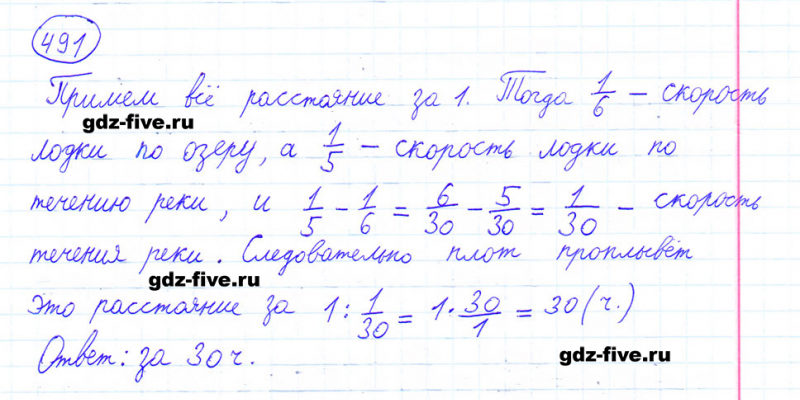 491
Примем всё расстояние за 1. Тогда 1/6 – скорость
gdz-five.ru
лодки по озеру, а 1/5 – скорость лодки по
течению реки, и 1/5 – 1/6 = 6/30 – 5/30 = 1/30 – скорость
течения реки. Следовательно плот проплывёт
gdz-five.ru
это расстояние за 1 : 1/30 = 1 · 30/1 = 30 (ч.)
Ответ: за 30 ч.
gdz-five.ru